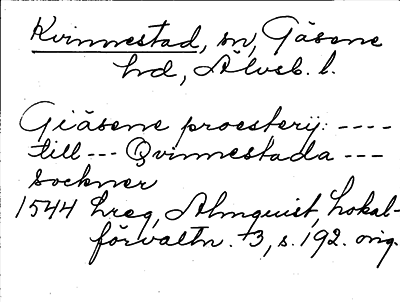 Kvinnestad, sn, Gäsene
hd, Älvsb. l.
Giäsene proesterij: ----
till --- Qvinnestada ---
sockner
1544 hreg, Almquist, Lokal-
förvaltn. 3, s. 192. orig.